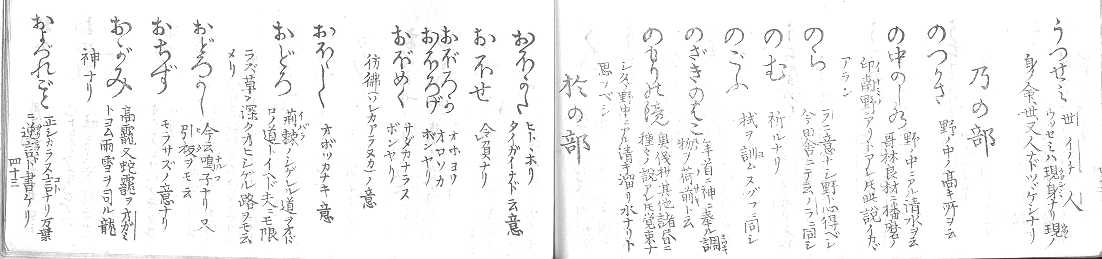 うつせミ 世 人
ウツセミハ現身ナリ現ノ
身ノ余世又人ナドツヾケシナリ
乃の部
のつかさ 野ノ中ノ高キ所ヲ云
の中のし水 野ノ中ニアル清水ヲ云
哥林良材ニ播磨ノ
印南野ニアリトアレ𪜈此説イカヾ
アラン
のら ラニ意ナシ野ト心得ベシ
今田舎ニテ云ノラニ同シ
のむ 祈ルナリ
のごふ 拭ヲ訓ムヌグフニ同シ
のざきのはこ 年首ニ神ニ奉ル調
物ヲ荷前ト云
のもりの鏡 奥儀抄其他諸書ニ
種々ノ説アレ𪜈覚束ナ
シ只野中ニアル清キ溜リ水ナリト
思フベシ
於の部
おほかた ヒトトホリ
タイガイナド云意
おほせ 令負ナリ
おぼろか オホヨソ
オロソカ
おぼろげ ボンヤリ
おぼめく サダカナラズ
ボンヤリ
彷彿ノ意
おほゝし オボツカナキ意
おどろ 荊棘ノシゲレル道ヲオド
ロノ道トイヘド夫ニモ限
ラズ草ノ深クオヒシゲル路ヲモ云
メリ
おどろかし 今云鳴子ナリ又
引板ヲモ云
おちず モラサズノ意ナリ
おがみ 高龗又蛇龗ヲオガミ
トヨム雨雪ヲ司ル龍
神ナリ
およづれごと 正シカラヌ言ナリ万葉
ニ逆言ト書ケリ
四十三